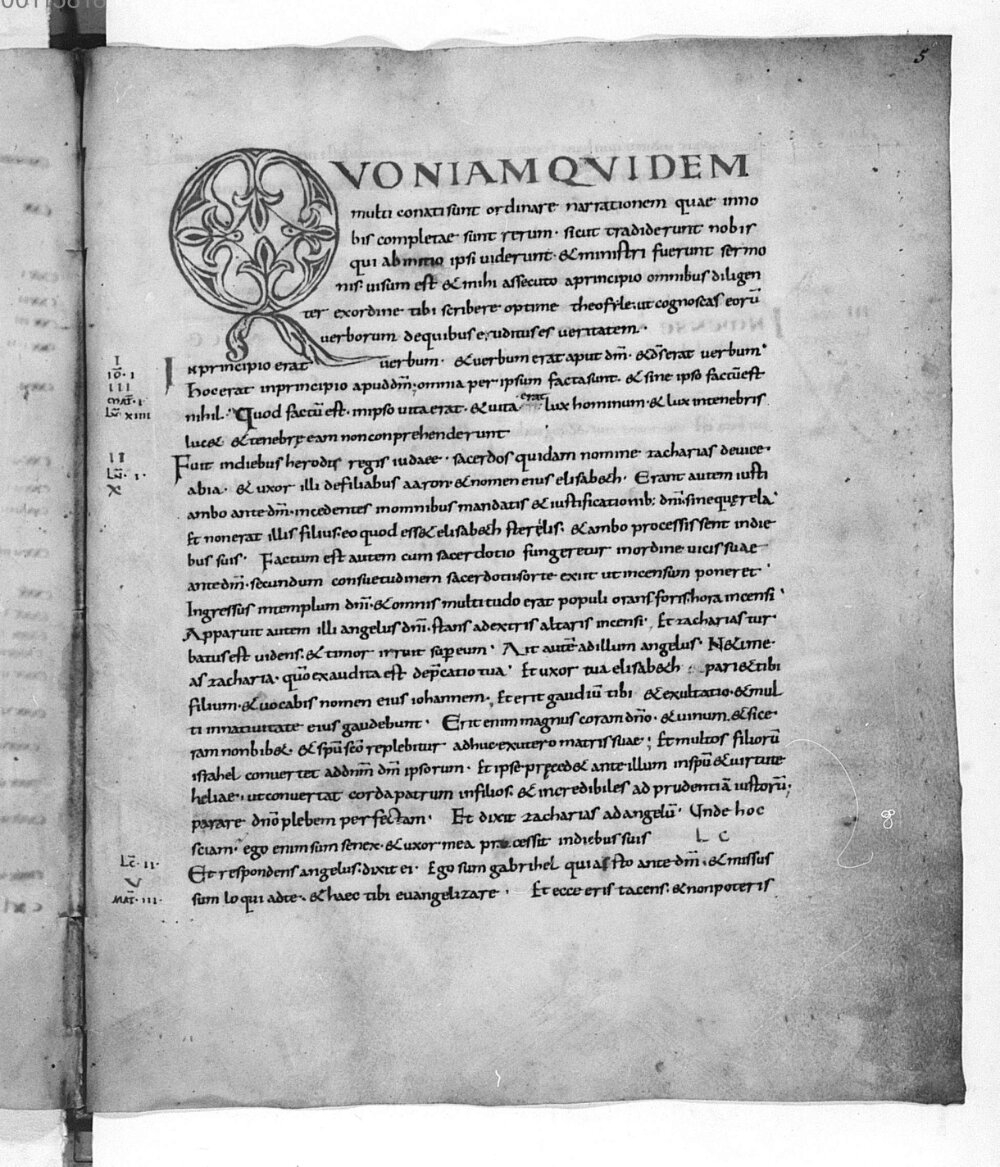 5
QVONIAM QVIDEM
multi conati sunt ordinare narrationem quae inno
bis completae sunt rerum· sicut tradiderunt nobis
qui abinitio ipsi uiderunt· &ministri fuerunt sermo
nis· uisum est &mihi assecuto aprincipio omnibus diligen
ter exordine tibi scribere optime theofile· ut cognoscas eorū
uerborum dequibus eruditus es ueritatem·
I
Inprincipio erat uerbum· &uerbum erat aput dm̄· &ds̄ erat uerbum·
IO· I
Hoc erat inprincipio apud dm̄; omnia per ipsum facta sunt· &sine ipso factū est
III
MAT· I
nihil· Quod factū est· inipso uita erat· &uita erat lux hominum· &lux intenebris
LŪ XIIII
luc& &tenebrę eam nonconprehenderunt
II
Fuit indiebus herodis regis iudaee· sacerdos quidam nomine zacharias deuice
LŪ· I·
X
abia· &uxor illi defiliabus aaron &nomen eius elisab&h· Erant autem iusti
ambo ante dm̄· incedentes inomnibus mandatis &iustificationib; dn̄i sine querela·
Et nonerat illis filius· eo quod ess& elisab&h sterelis· &ambo processissent indie
bus suis· Factum est autem cum sacerdotio fungeretur inordine uicis suae
ante dm̄· secundum consuetudinem sacerdotii sorte exiit ut incensum poneret·
Ingressus intemplum dn̄i· &omnis multitudo erat populi orans foris hora incensi·
Apparuit autem illi angelus dn̄i· stans adextris altaris incensi· Et zacharias tur
batus est uidens· &timor irruit super eum· Ait autē adillum angelus· Ne time
as zacharia· quō exaudita est deprecatio tua· Et uxor tua elisab&h pari& tibi
filium· &uocabis nomen eius iohannem· Et erit gaudiū tibi &exultatio· &mul
ti innatiuitate eius gaudebunt· Erit enim magnus coram dn̄o· &uinum &sice
ram non bib&· &spū scō replebitur adhuc exutero matris suae; Et multos filiorū
israhel conuertet addn̄m dm̄ ipsorum· Et ipse preced& ante illum inspū &uirtute
heliae· ut conuertat corda patrum infilios· &incredibiles ad prudentiā iustorū;
parare dn̄o plebem perfectam· Et dixit zacharias ad angelū· Unde hoc
sciam· ego enim sum senex· &uxor mea processit indiebus suis L C
LŪ· II·
Et respondens angelus· dixit ei· Ego sum gabrihel qui asto ante dm̄· &missus
V
MAT· III·
sum loqui adte· &haec tibi euangelizare· Et ecce eris tacens· &non poteris